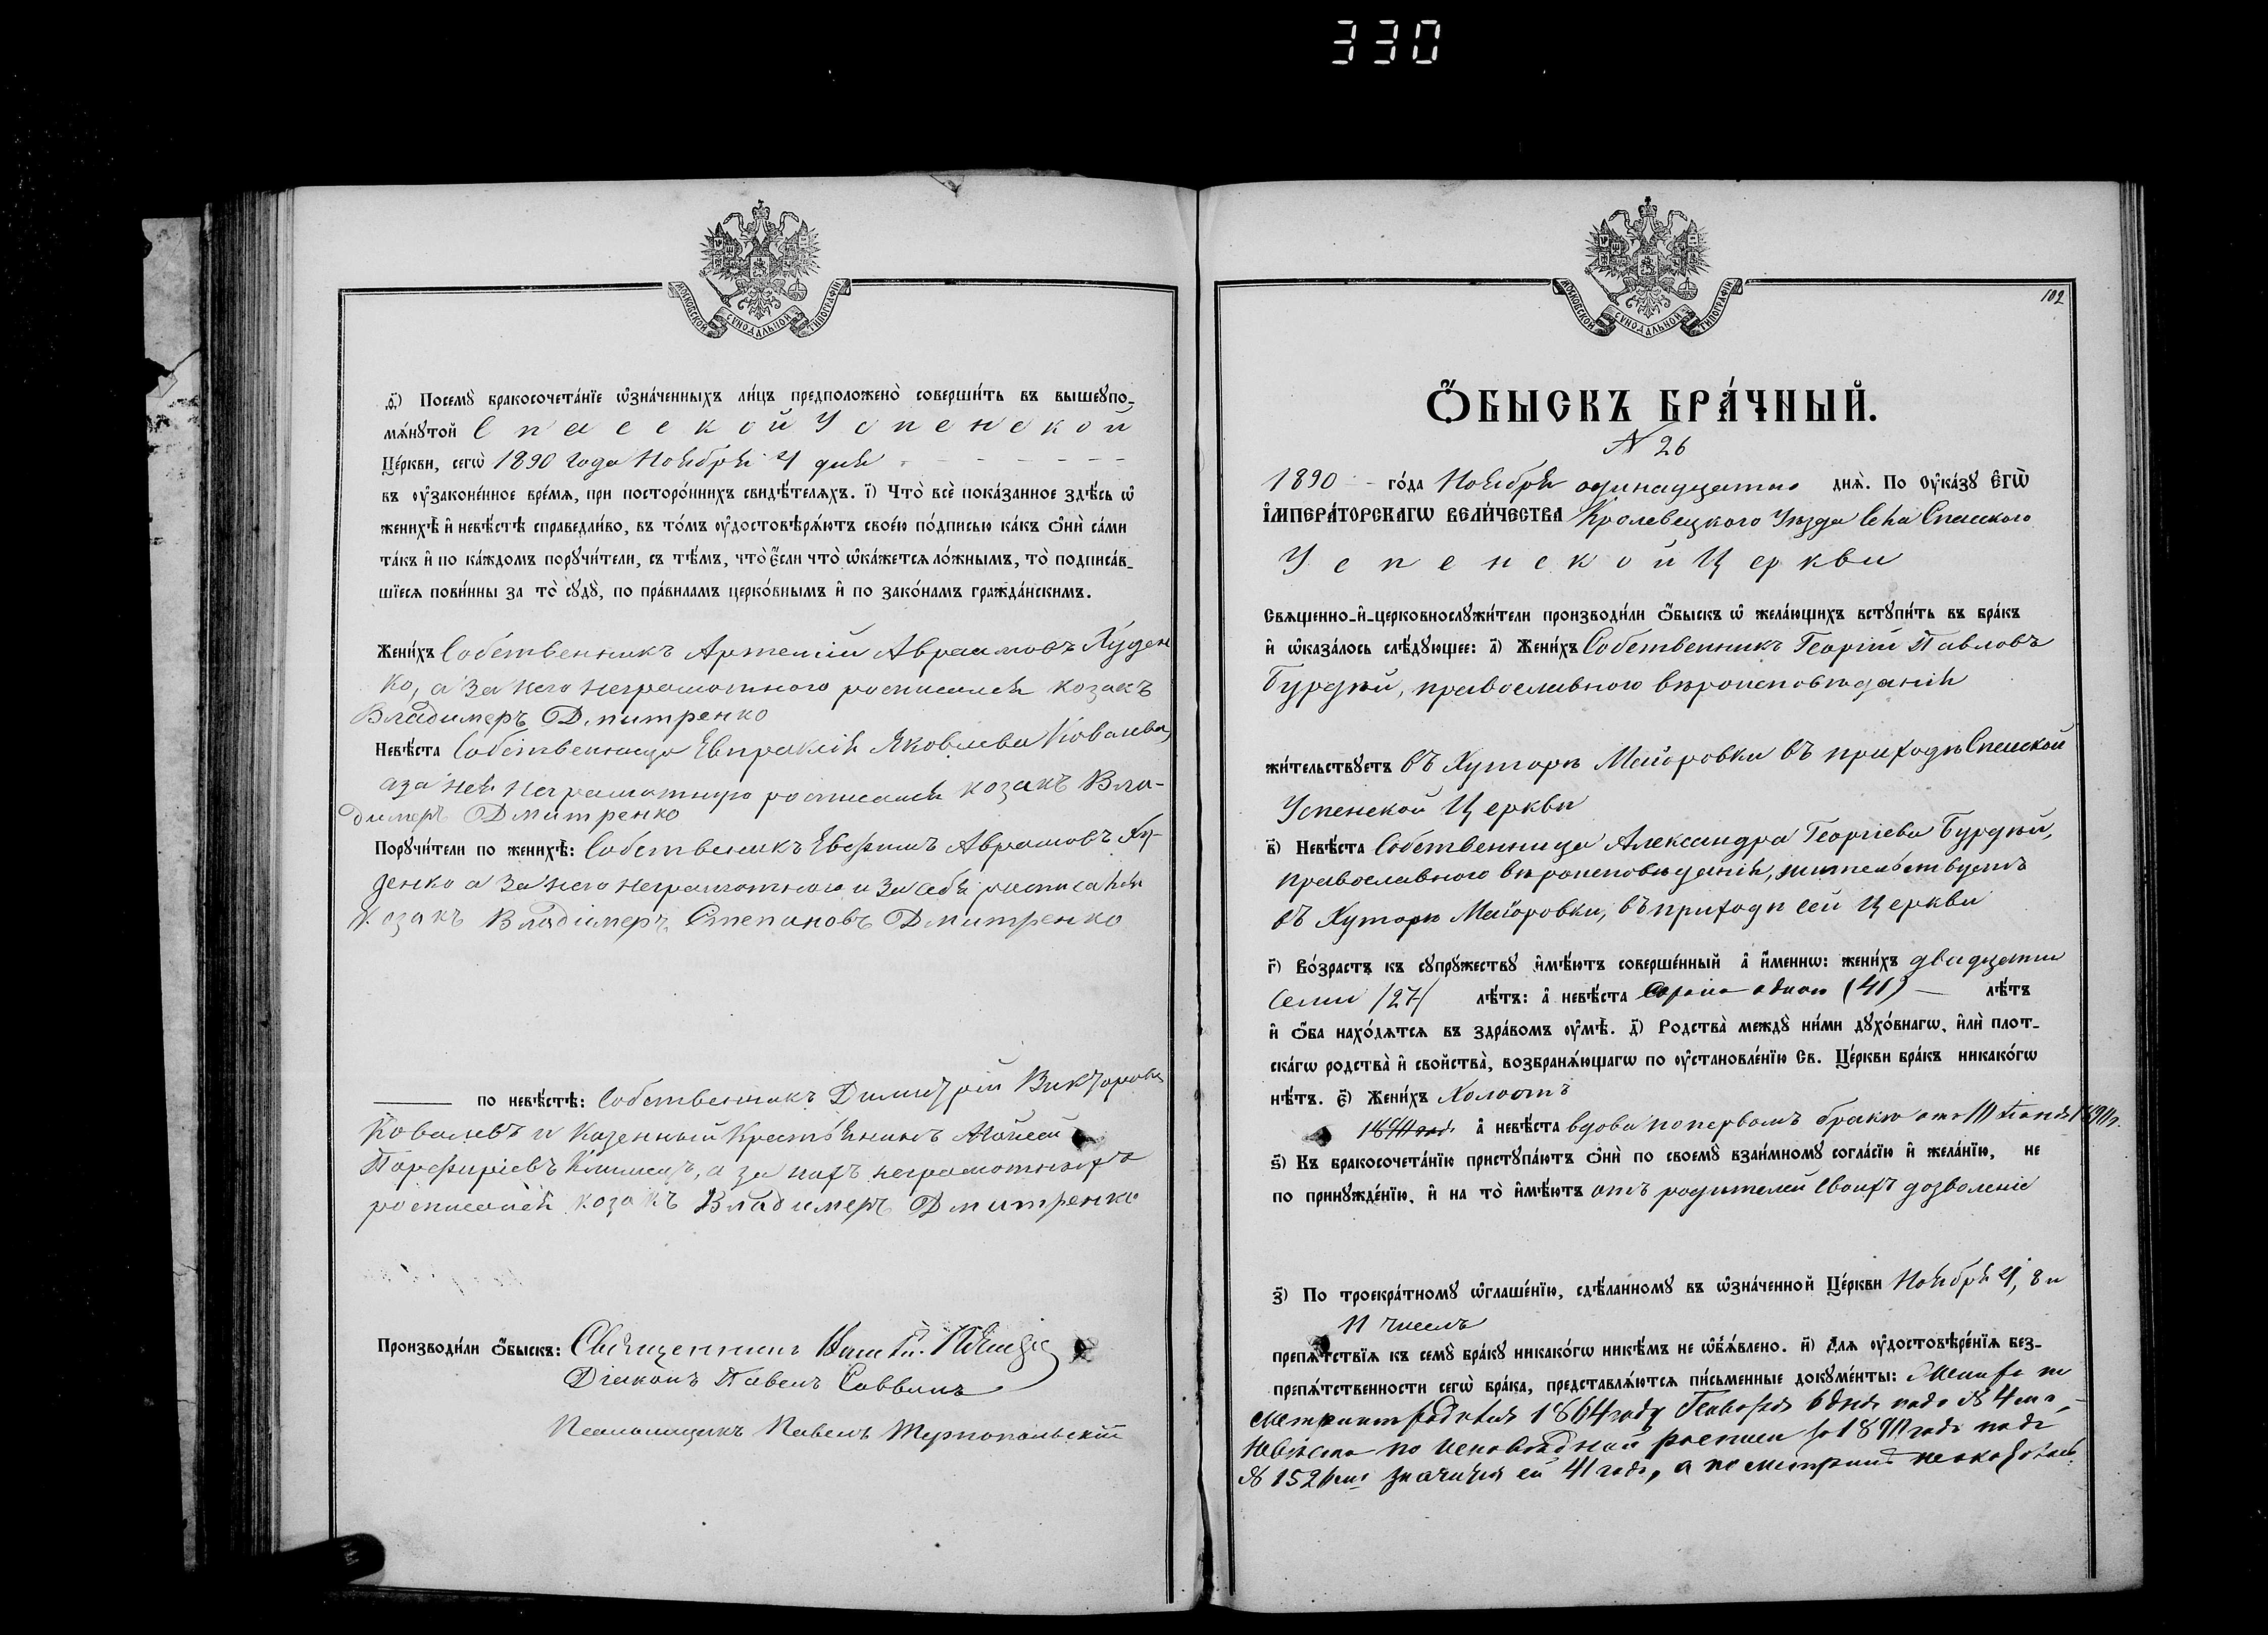 330
МОСКОВСКОЙ СѴНОДАЛЬНОЙ ТИПОГРАФІИ
д҃і) Посемꙋ̀ бракосочета́нїе ѡ҆зна́ченныхъ ли́цъ предположено̀ соверши́ть въ вышеꙋпо-
мѧ́нꙋтой Спасской Успенской
Це́ркви, сегѡ̀ 1890 года Ноября 4 дня
въ ᲂу҆законе́нное вре́мѧ, при посторо́ннихъ свидѣ́телѧхъ. і҃) Что̀ всѐ пока́занное здѣ́сь ѡ҆
женихѣ̀ и҆ невѣ́стѣ справедли́во, въ то́мъ ᲂу҆достовѣрѧ́ютъ свое́ю по́дписью ка́къ ѻ҆нѝ са́ми
та́къ и҆ по ка́ждомъ порꙋчи́тели, съ тѣ́мъ, что̀ є҆́сли что̀ ѡ҆ка́жетсѧ ло́жнымъ, то̀ подписа́в-
шїесѧ пови́нны за то̀ сꙋдꙋ̀, по пра́виламъ церко́внымъ и҆ по зако́намъ гражда́нскимъ.
Жени́хъ Собственникъ Артемій Авраамовъ Худен
ко, а за него неграмотного росписался козакъ
Владимеръ Дмитренко
Невѣ́ста Собственница Евпраксія Яковлева Ковалева,
а за нея неграмотную росписался козакъ Вла-
димеръ Дмитренко
Порꙋчи́тели по женихѣ̀: Собственикъ Евфимъ Аврамовъ Ху-
денко а за него неграмотного и за себя росписался
Козакъ Владимеръ Степановъ Дмитренко
по невѣ́стѣ: Собственникъ Димитрій Викторовъ
Ковалевъ и Казенный Крестьянинъ Моисей
Порфиріевъ Климецъ, а за нихъ неграмотныхъ
росписался козакъ Владимеръ Дмитренко
Производи́ли ѻ҆́быскъ: Священникъ
Діаконъ Павелъ Саввинъ
Псаломщикъ Павелъ Тернопольскій
МОСКОВСКОЙ СѴНОДАЛЬНОЙ ТИПОГРАФІИ
102
Ѻ҆́БЫСКЪ БРА́ЧНЫЙ.
N 26
1890 го́да Ноября одинадцатого днѧ̀. По ᲂу҆ка́зꙋ Є҆гѡ̀
І҆мпера́торскагѡ Вели́чества Кролевецкого Уѣзда Села Спасского
Успенской Церкви
Свѧщенно-и҆-церковнослꙋжи́тели производи́ли ѻ҆́быскъ ѡ҆ жела́ющихъ встꙋпи́ть въ бра́къ
и҆ ѡ҆каза́лось слѣ́дꙋющее: а҃) Жени́хъ Собственникъ Георгій Павловъ
Бурдкій, православного вѣроисповѣданія
жи́тельствꙋетъ въ Хуторѣ Маіоровки въ приходѣ Спасской
Успенской Церкви
в҃) Невѣ́ста Собственница Александра Георгіева Бурдкій,
православного вѣроисповѣданія, жительствуетъ
въ Хуторѣ Маіоровки, въ приходѣ сей Церкви
г҃) Во́зрастъ къ сꙋпрꙋ́жествꙋ и҆мѣ́ютъ соверше́нный а҆ и҆́меннѡ: жени́хъ двадцати
семи /27/ лѣ́тъ: а҆ невѣ́ста Сорока одного (41) — лѣ́тъ
и҆ ѻ҆́ба нахо́дѧтсѧ въ здра́вомъ ᲂу҆мѣ̀. д҃) Родства̀ междꙋ̀ ни́ми дꙋхо́внагѡ, и҆лѝ плот-
ска́гѡ родства̀ и҆ свойства̀, возбранѧ́ющагѡ по ᲂу҆становле́нїю Св. Це́ркви бра́къ никако́гѡ
нѣ́тъ. є҃) Жени́хъ Холостъ
а҆ невѣ́ста вдова по первомъ бракѣ
ѕ҃) Къ бракосочета́нїю пристꙋпа́ютъ ѻ҆нѝ по своемꙋ̀ взаи́мномꙋ согла́сїю и҆ жела́нїю, не
по принꙋжде́нїю, и҆ на то̀ и҆мѣ́ютъ отъ родителей своихъ дозволеніе
з҃) По троекра́тномꙋ ѡ҆глаше́нїю, сдѣ́ланномꙋ въ ѡ҆зна́ченной Це́ркви Ноября 4, 8 и
11 числъ
препѧ́тствїѧ къ семꙋ̀ бра́кꙋ никако́гѡ никѣ́мъ не ѡ҆б̾ѧ́влено. и҃) Длѧ̀ ᲂу҆достовѣре́нїѧ без-
препѧ́тственности сегѡ̀ бра́ка, представлѧ́ютсѧ пи́сьменные докꙋме́нты: Женихъ по
метрикѣ родился 1864 году Генваря 6 дня подъ № 4мъ,
Невѣста по исповѣдной росписи за 1890 годъ подъ
№ 152 значится ей 41 годъ, а по метрики неоказалась.